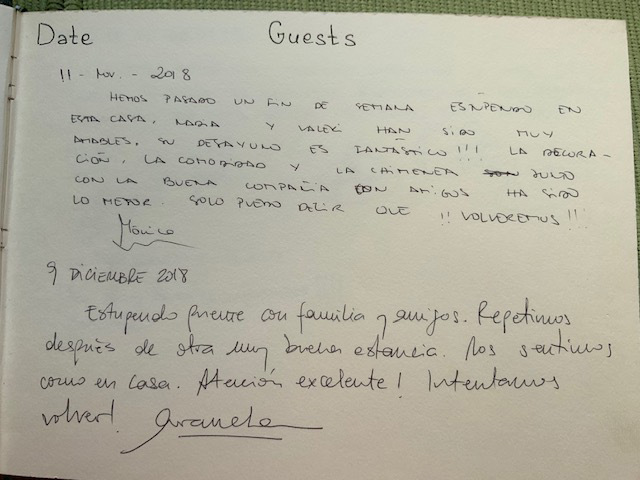 Date Guests
11 - Nov. - 2018
HEMOS PASADO UN FIN DE SEMANA ESTUPENDO EN
ESTA CASA, MARIA Y VALERI HAN SIDO MUY
AMABLES, SU DESAYUNO ES FANTÁSTICO!!! LA DECORA-
CIÓN, LA COMODIDAD Y LA CHIMENEA JUNTO
CON LA BUENA COMPAÑIA CON AMIGOS HA SIDO
LO MEJOR. SOLO PUEDO DECIR QUE !! VOLVEREMOS!!!
Mónica
9 DICIEMBRE 2018
Estupendo puente con familia y amigos. Repetimos
después de otra muy buena estancia. Nos sentimos
como en casa. Atención excelente! Intentamos
volver!